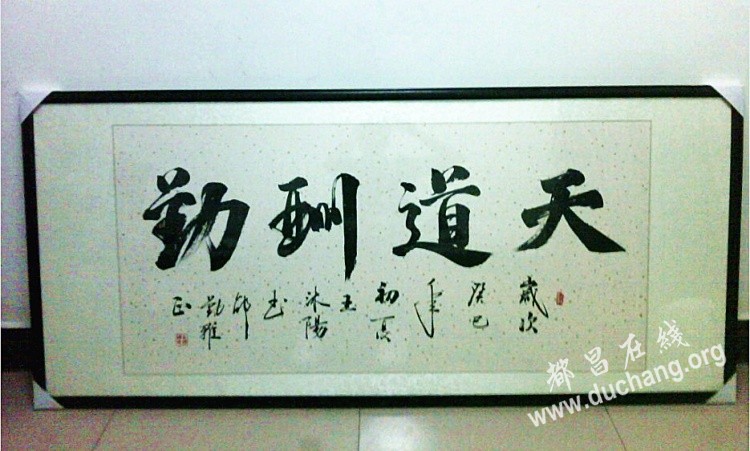 天道酬勤
歲次癸巳年初夏王沐陽书勤雅正
都昌在线
www.duchang.org